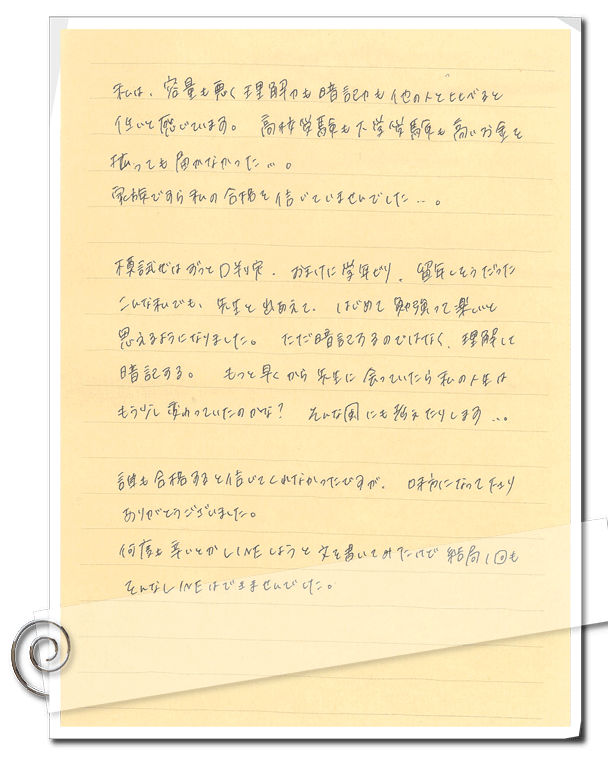 私は、容量も悪く理解力も暗記力も他の人と比べると
低いと感じています。 高校受験も大学受験も高いお金を
払っても届かなかった…。
家族ですら私の合格を信じていませんでした…。
模試ではずっとD判定、おまけに学年ビリ、留年しそうだった
こんな私でも、先生と出会えて、はじめて勉強って楽しいと
思えるようになりました。 ただ暗記するのではなく、理解して
暗記する。 もっと早くから先生に会っていたら私の人生は
もう少し変わっていたのかな? そんな風にも考えたりします…。
誰も合格すると信じてくれなかったですが、味方になって下さり
ありがとうございました。
何度も辛いとかLINEしようと文を書いてみたけど結局1回も
そんなLINEはできませんでした。